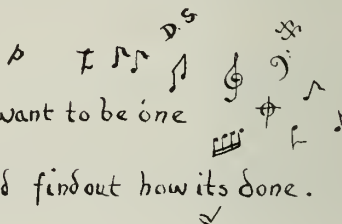 D.S
want to be one
find out how its done.